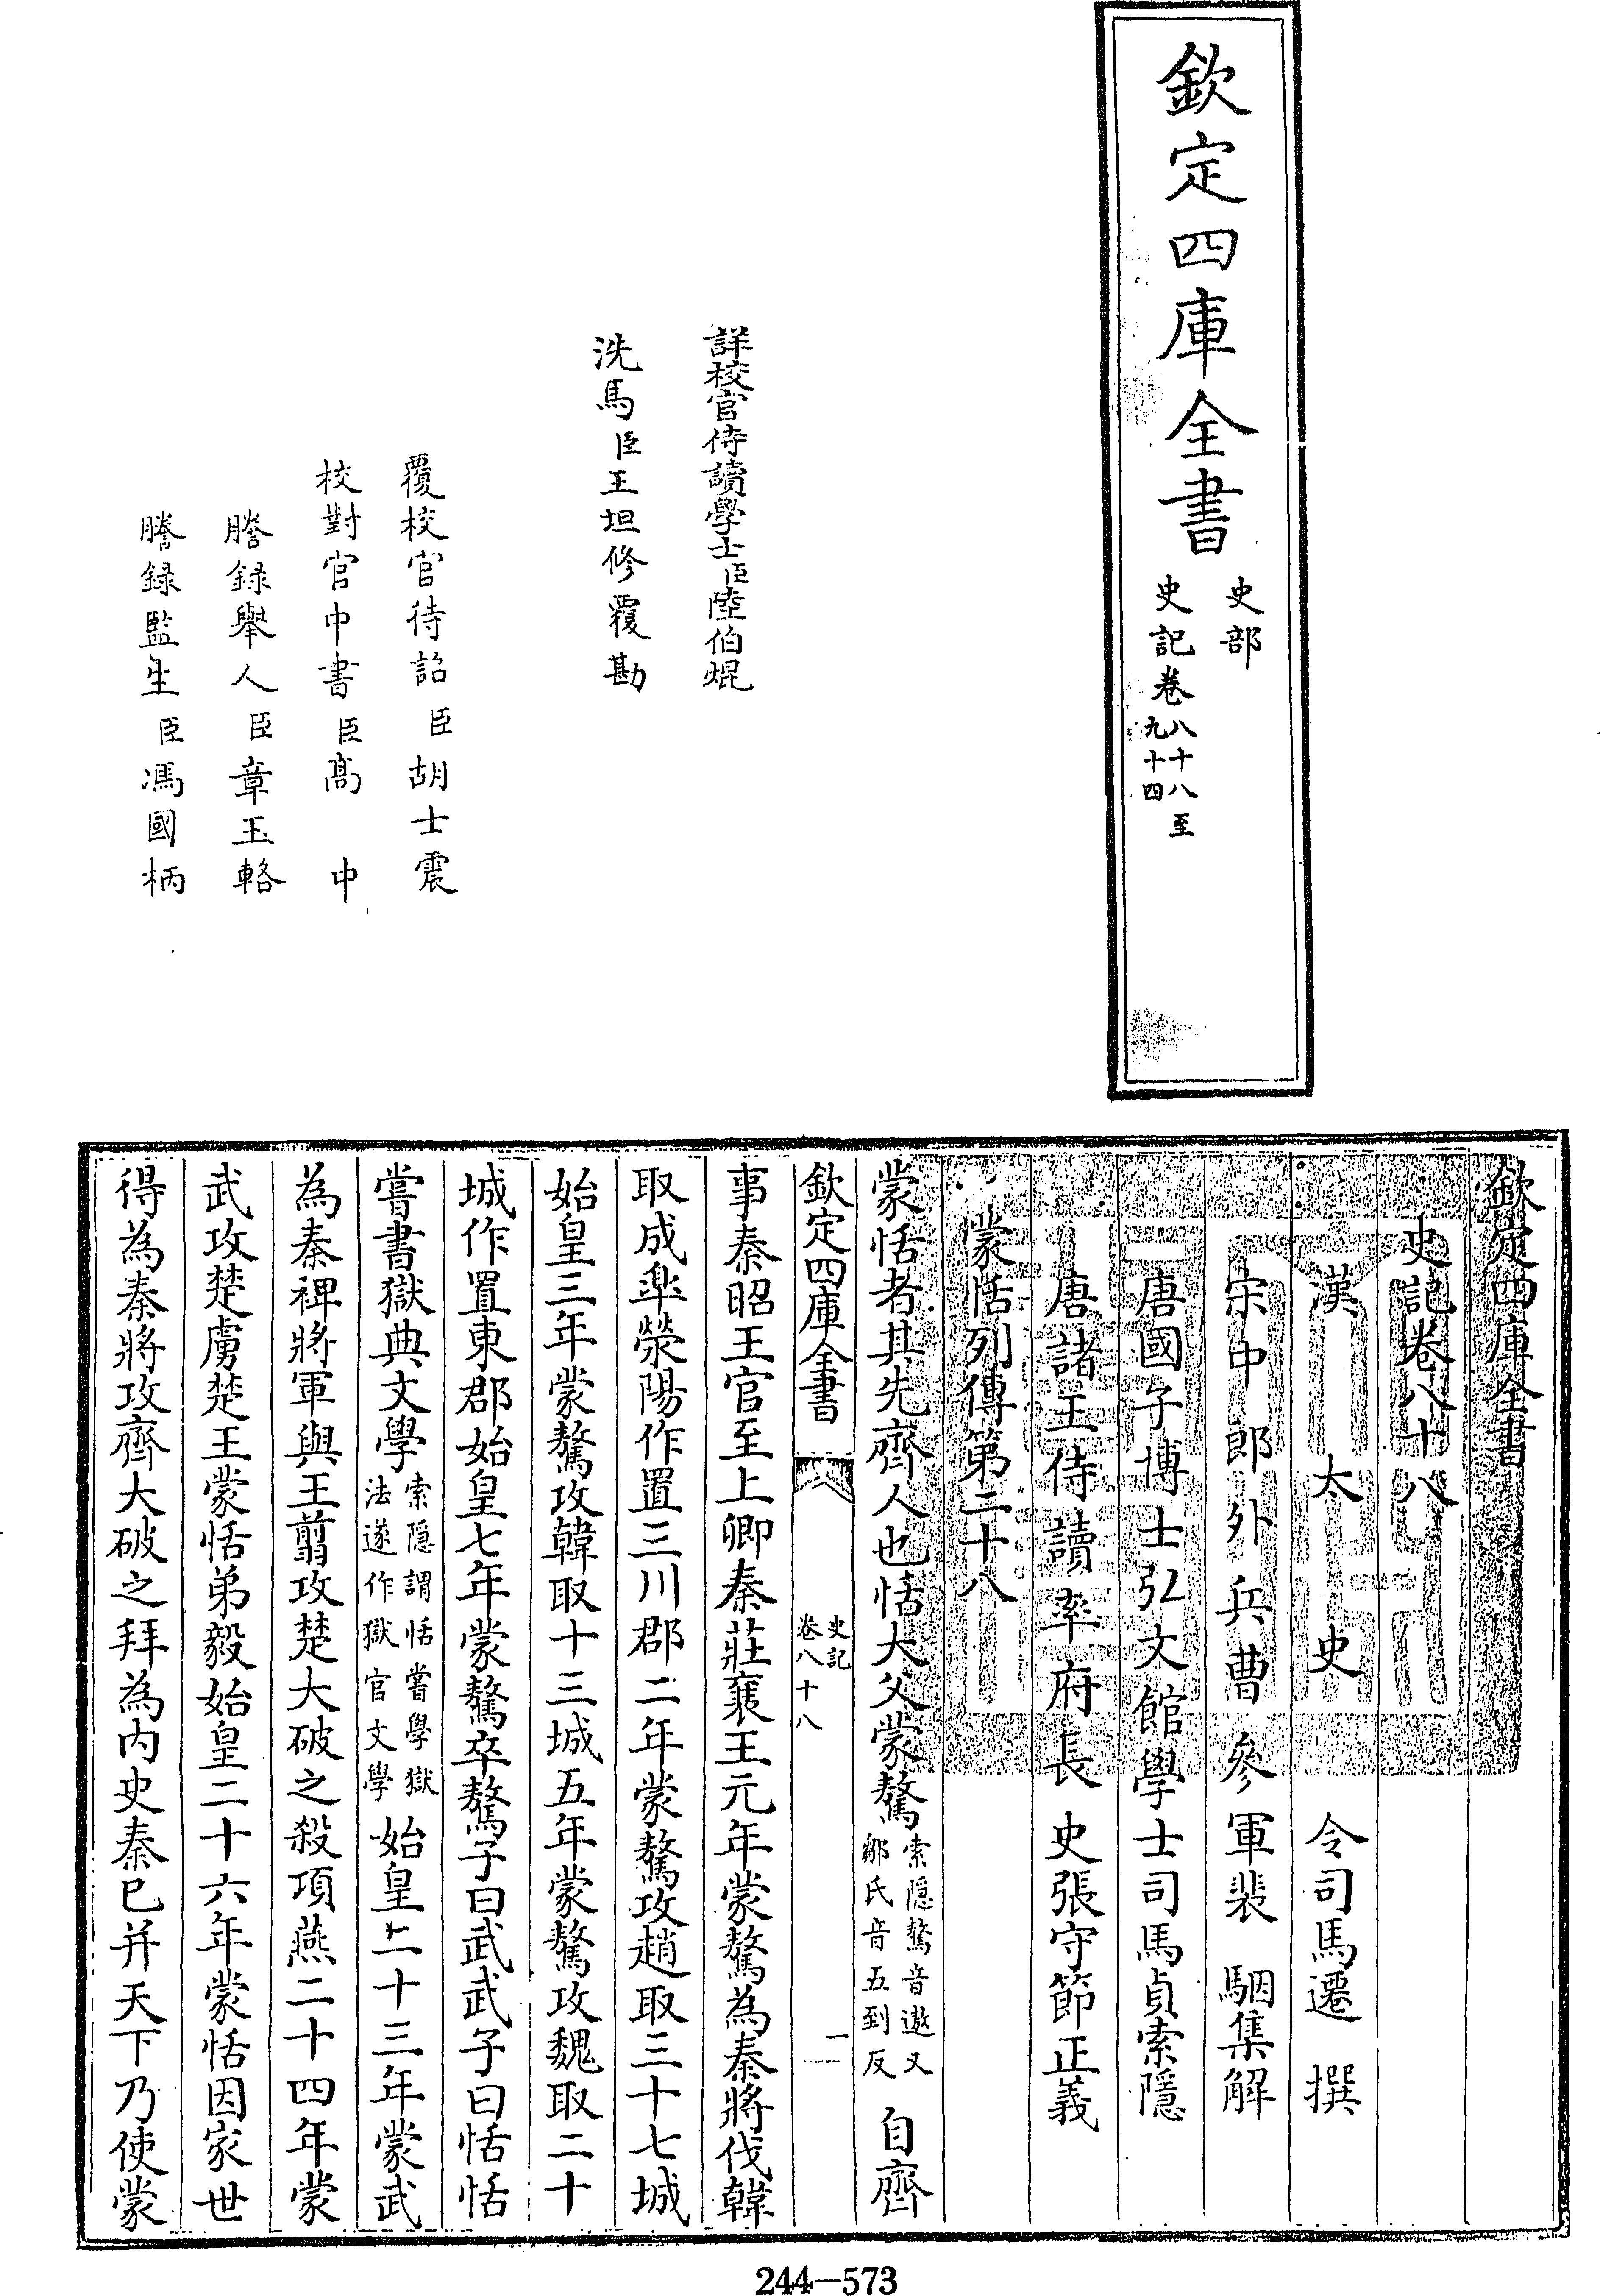 欽定四庫全書
史部
史記卷八十八至
九十四
詳校官侍讀學士臣陸伯焜
洗馬臣王坦修覆勘
覆校官待詔臣胡士震
校對官中書臣髙中
謄録舉人臣章玉輅
謄録監生臣馮國柄
欽定四庫全書
史記卷八十八
漢太史令司馬遷撰
宋中郎外兵曹參軍裴駰集解
唐國子博士弘文館學士司馬貞索隱
唐諸王侍讀率府長史張守節正義
蒙恬列傳第二十八
蒙恬者其先齊人也恬大父蒙驁
索隱驁音遨又
鄒氏音五到反
自齊
欽定四庫全書
史記
卷八十八
一
事秦昭王官至上卿秦莊襄王元年蒙驁為秦將伐韓
取成臯滎陽作置三川郡二年蒙驁攻趙取三十七城
始皇三年蒙驁攻韓取十三城五年蒙驁攻魏取二十
城作置東郡始皇七年蒙驁卒驁子曰武武子曰恬恬
嘗書獄典文學
索隱謂恬嘗學獄
法遂作獄官文學
始皇二十三年蒙武
為秦裨將軍與王翦攻楚大破之殺項燕二十四年蒙
武攻楚虜楚王蒙恬弟毅始皇二十六年蒙恬因家世
得為秦將攻齊大破之拜為内史秦已并天下乃使蒙
244—573